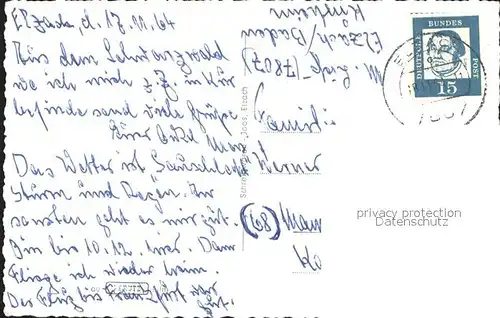 Elzach, d. 17.11.64
Aus dem Schwarzwald
wo ich mich z.Z. in Kur
befinde sand viele Grüße
Euer Onkel Max
Das Wetter ist Sauschlecht
Sturm und Regen. Mir
sonsten geht es mir gut.
Bin bis 10.12. hier. Dann
Fliege ich wieder heim.
Der Flug bis Frankfurt war
gut.
M.
(7807)
Elzach/Baden
Kurheim
Familie
Werner
(68) Mann
DEUTSCHE BUNDES POST
15
7807
Joos, Elzach
privacy protection
Datenschutz